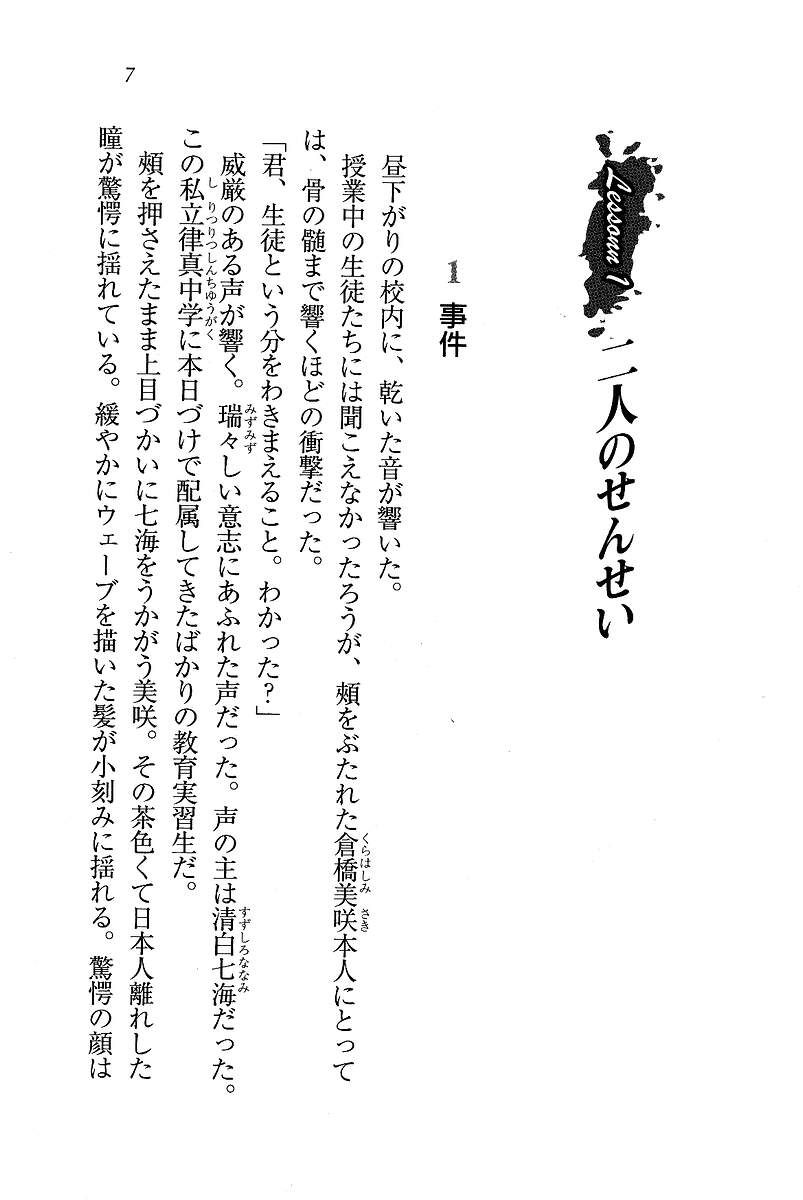 7
Lesson 1 二人のせんせい
1 事件
昼下がりの校内に、乾いた音が響いた。
授業中の生徒たちには聞こえなかったろうが、頰をぶたれた倉橋美咲本人にとって
くらはしみさき
は、骨の髄まで響くほどの衝撃だった。
「君、生徒という分をわきまえること。わかった?」
威厳のある声が響く。瑞々しい意志にあふれた声だった。声の主は清白七海だった。
みずみず
すずしろななみ
この私立律真中学に本日づけで配属してきたばかりの教育実習生だ。
しりつりつしんちゅうがく
頰を押さえたまま上目づかいに七海をうかがう美咲。その茶色くて日本人離れした
瞳が驚愕に揺れている。緩やかにウェーブを描いた髪が小刻みに揺れる。驚愕の顔は